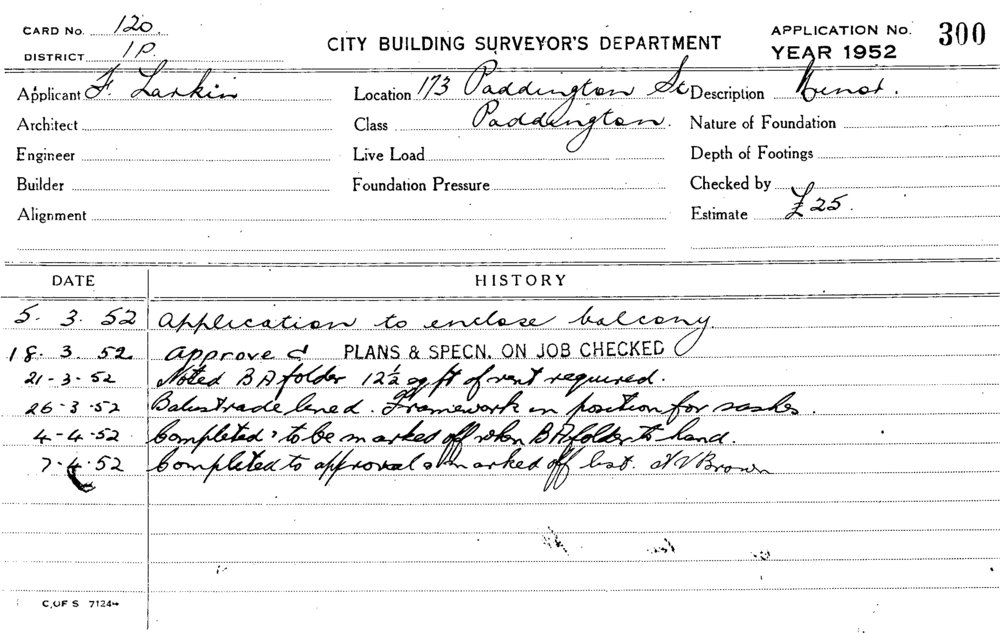 CARD No. 120.
DISTRICT 1P.
CITY BUILDING SURVEYOR'S DEPARTMENT
APPLICATION No. 300
YEAR 1952
Applicant F. Larkin
Location 173 Paddington St
Description
Architect
Class Paddington.
Nature of Foundation
Engineer
Live Load
Depth of Footings
Builder
Foundation Pressure
Checked by
Alignment
Estimate £25.
DATE HISTORY
5. 3. 52 Application to enclose balcony.
18. 3. 52 Approved PLANS & SPECN. ON JOB CHECKED
21-3-52 Noted BA folder 12½ sq ft of vent required.
26-3-52 Balustrade lined. Framework in position for sashes.
4-4-52 Completed, to be marked off when BA folder to hand.
7-4-52 Completed to approval & marked off list. Brown
C. OF S 7124